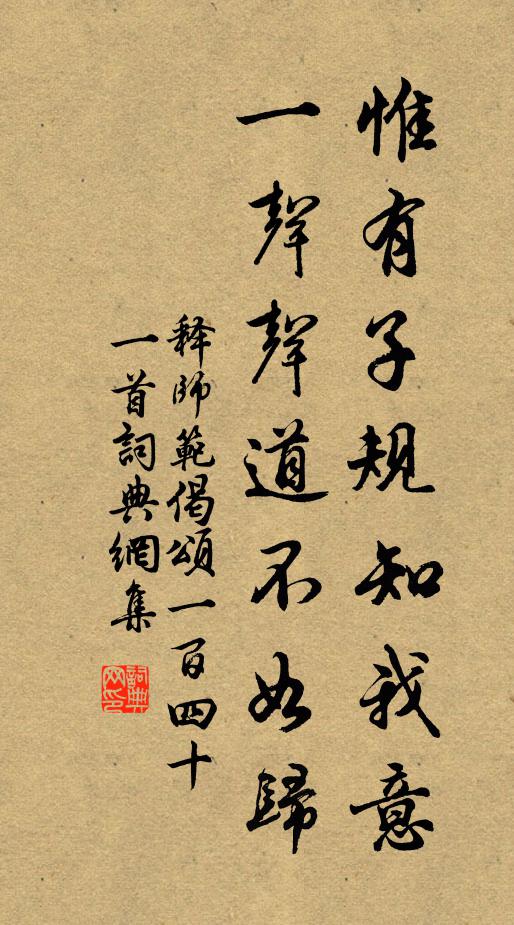 惟有子規知我意
一聲聲道不如歸
释師範偈頌一百四十
一首詞典網集
詞典
网印